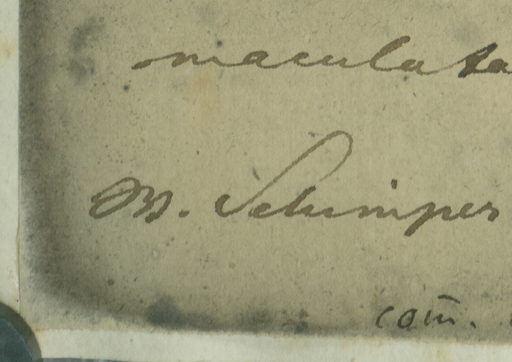 maculata
W. Schimper
com̄.